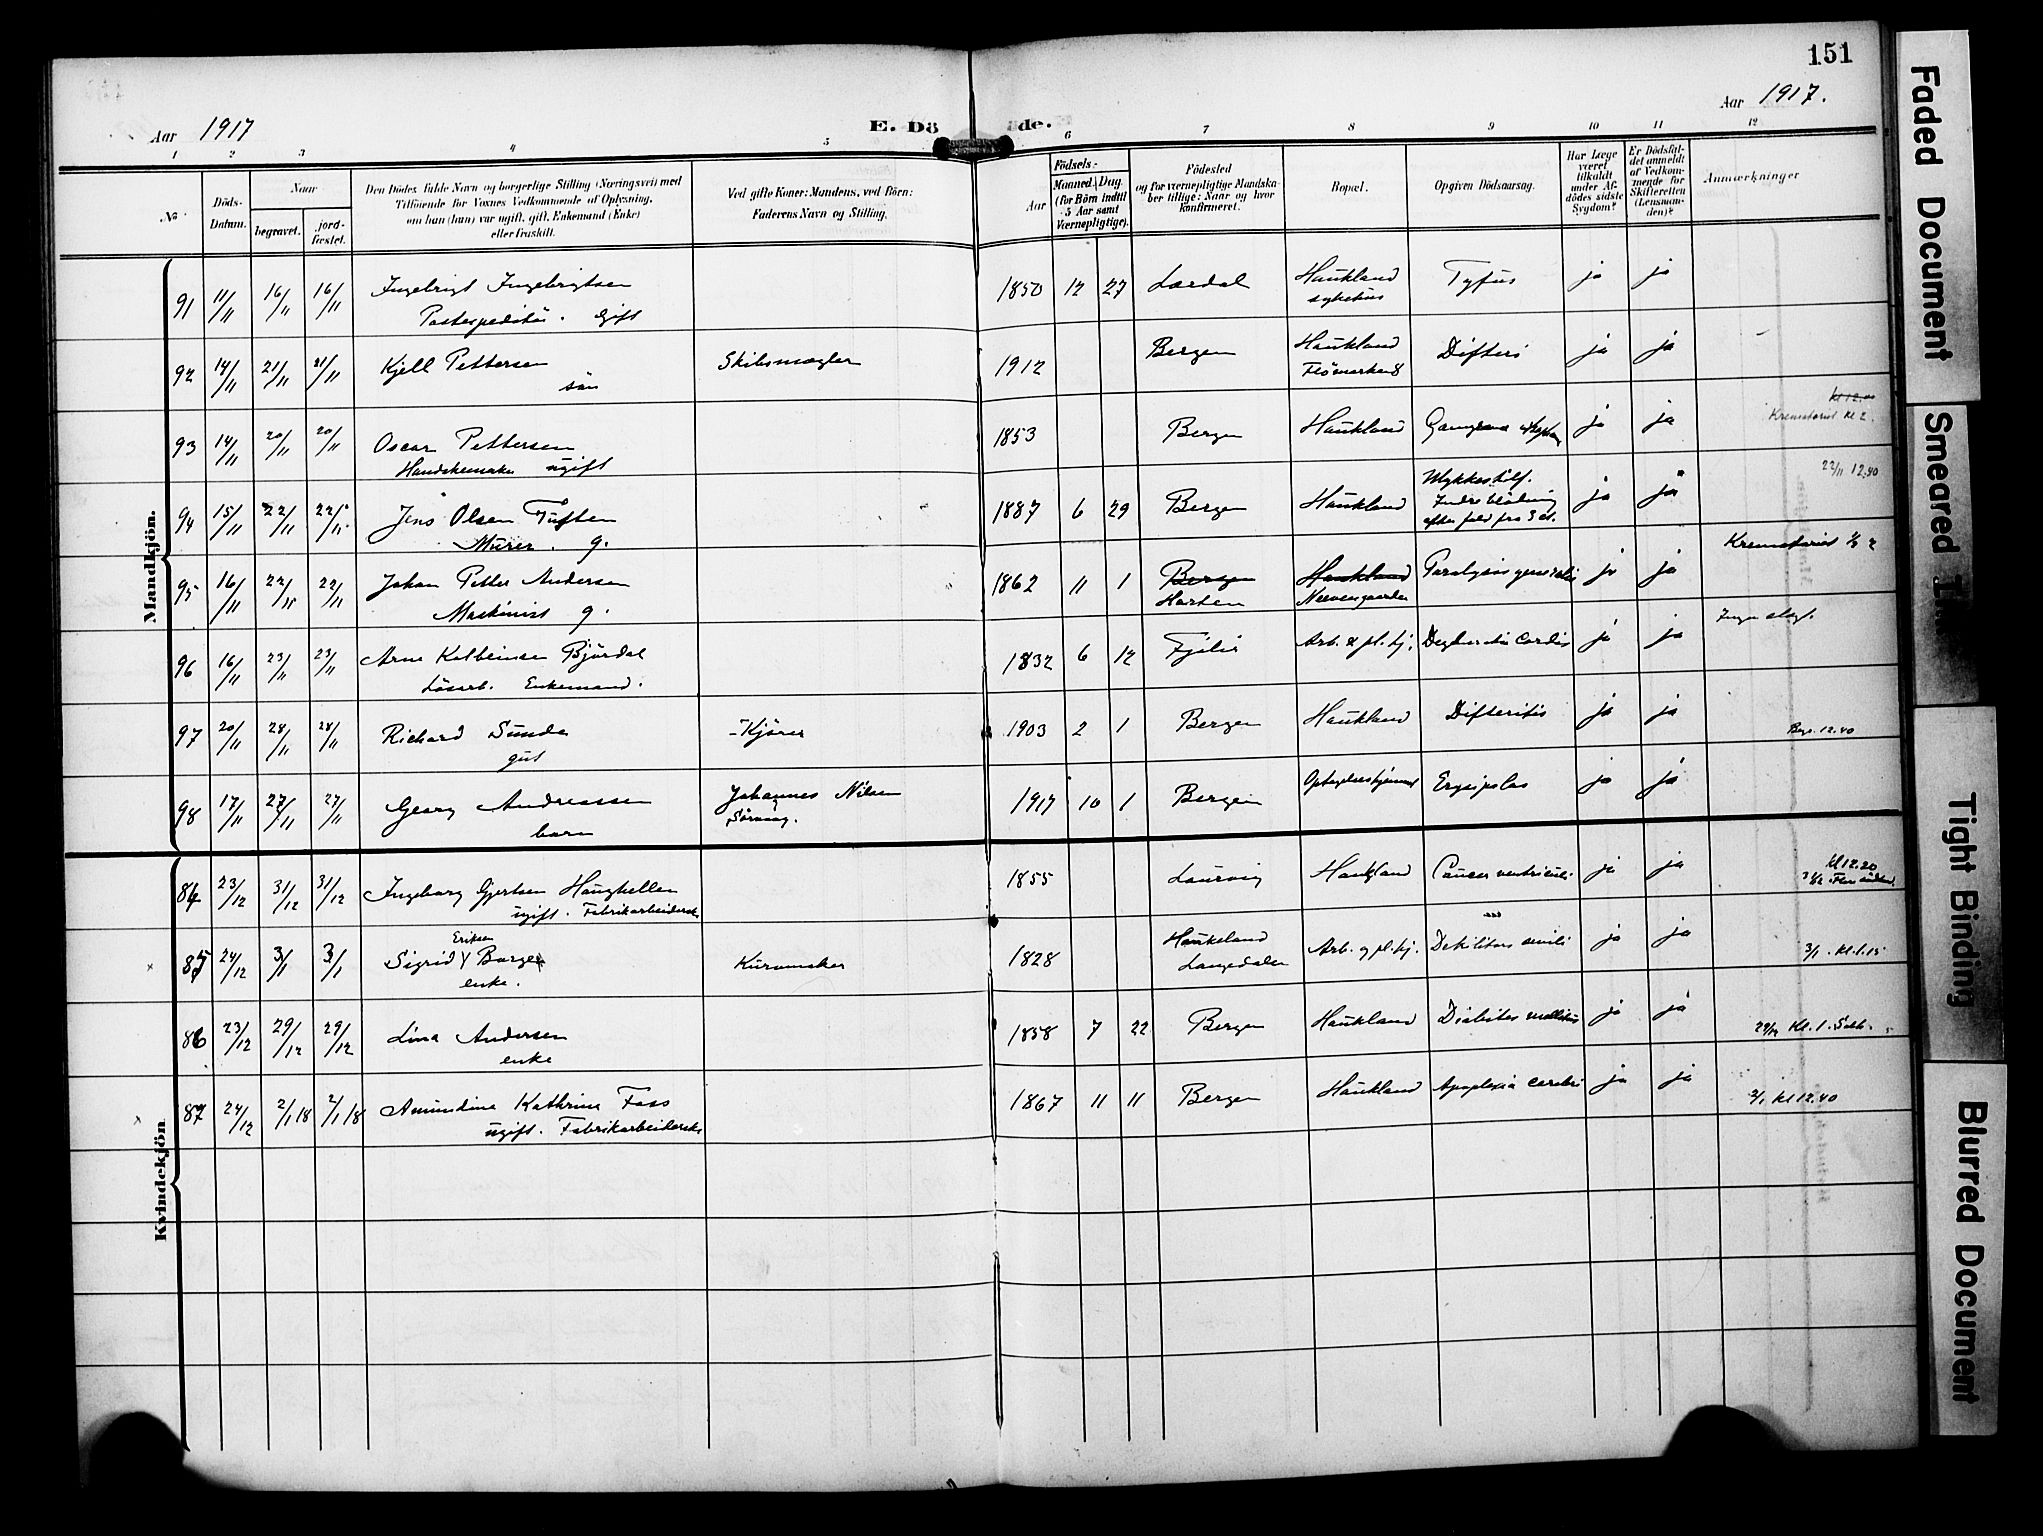 151
Aar 1917
E. Döde.
Aar 1917.
1 2 3 4 5 6 7 8 9 10 11 12
No
Döds-Datum.
Naar
begravet.
jord-fæstet.
Den Dödes fulde Navn og borgerlige Stilling (Næringsvei) med
Tilföiende for Voxnes Vedkommende af Oplysning,
om han (hun) var ugift, gift, Enkemand (Enke)
eller fraskilt.
Ved gifte Koner: Mandens, ved Börn:
Faderens Navn og Stilling.
Födsels-
Aar
Maaned. Dag.
(for Börn indtil
5 Aar samt
Værnepligtige).
Födested
og for værnepligtige Mandska-
ber tillige: Naar og hvor
konfirmeret.
Bopæl.
Opgiven Dödsaarsag.
Har Læge
været
tilkaldt
under Af-
dödes sidste
Sygdom?
Er Dödsfal-
det anmeldt
af Vedkom-
mende for
Skifteretten
(Lensman-
den)?
Anmærkninger
Mandkjön.
91 11/11 16/11 16/11 Ingebrigt Ingebrigtsen 1850 12 27 Lærdal Haukland Tyfus ja ja
Postexpeditör. Gift sykehus
92 14/11 21/11 21/11 Kjell Pettersen Skibsmægler 1912 Bergen Haukland Difteri ja ja
sön
kl 12.00
93 14/11 20/11 20/11 Oscar Pettersen 1853 Bergen Haukland Gangræna ja ja Krematoriet Kl 2.
Handskemaker ugift
94 15/11 22/11 22/11 Jens Olsen Tuften 1887 6 29 Bergen Haukland Ulykkestilf. ja ja 22/11 12.40
Murer. g. Indre blödning
efter fald fra 3 et.
95 16/11 22/11 22/11 Johan Petter Andersen 1862 11 1 Bergen Haukland Paralysis generalis ja ja Krematoriet
Maskinist g. Horten Neevengaarden
96 16/11 23/11 23/11 Arne Kolbeinsen Björdal 1832 6 12 Fjelir Arb. & pl. hj. Cordis ja ja Ingen
Lösarb. Enkemand.
97 20/11 28/11 28/11 Richard Sunde - Kjörer 1903 2 1 Bergen Haukland Difteritis ja ja 12.40
gut
98 17/11 27/11 27/11 Georg Andreassen Johannes Nilsen 1917 10 1 Bergen Erysipelas ja ja
barn
Kvindekjön
84 23/12 31/12 31/12 Ingeborg Gjertsen Haughellen 1855 Laurvig Haukland Cancer ventriculi ja ja kl 12.20
ugift. Fabrikarbeiderske
85 24/12 3/1 3/1 Sigrid Eriksen Borge Kurvmaker 1828 Haukeland Arb. og pl. hj. Debilitas senilis ja ja 3/1. Kl. 1.15
enke. Langedalen
86 23/12 29/12 29/12 Lina Andersen 1858 7 22 Bergen Haukland Diabetes mellitus ja ja 29/12 Kl. 1. Solh.
enke
87 24/12 2/1 18 2/1 18 Amundine Kathrine Foss 1867 11 11 Bergen Haukland Apoplexia cerebri ja ja 2/1 Kl 12.40
ugift. Fabrikarbeiderske
Faded Document
Smeared
Tight Binding
Blurred Document